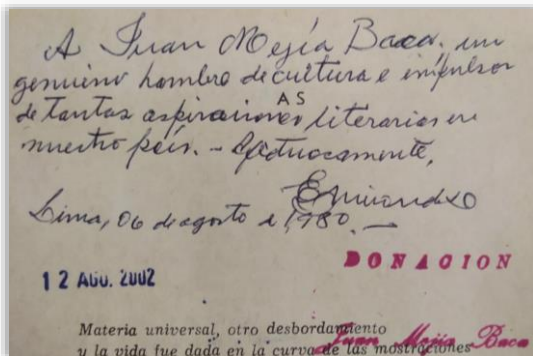 A Juan Mejía Baca, un
genuino hombre de cultura e impulsor
de tantas aspiraciones literarias en
AS
nuestro país. - Afectuosamente,
Lima, 06 de agosto de 1980. -
DONACION
12 AGO. 2002
Juan Mejía Baca
Materia universal, otro desbordamiento
y la vida fue dada en la curva de las mostraciones